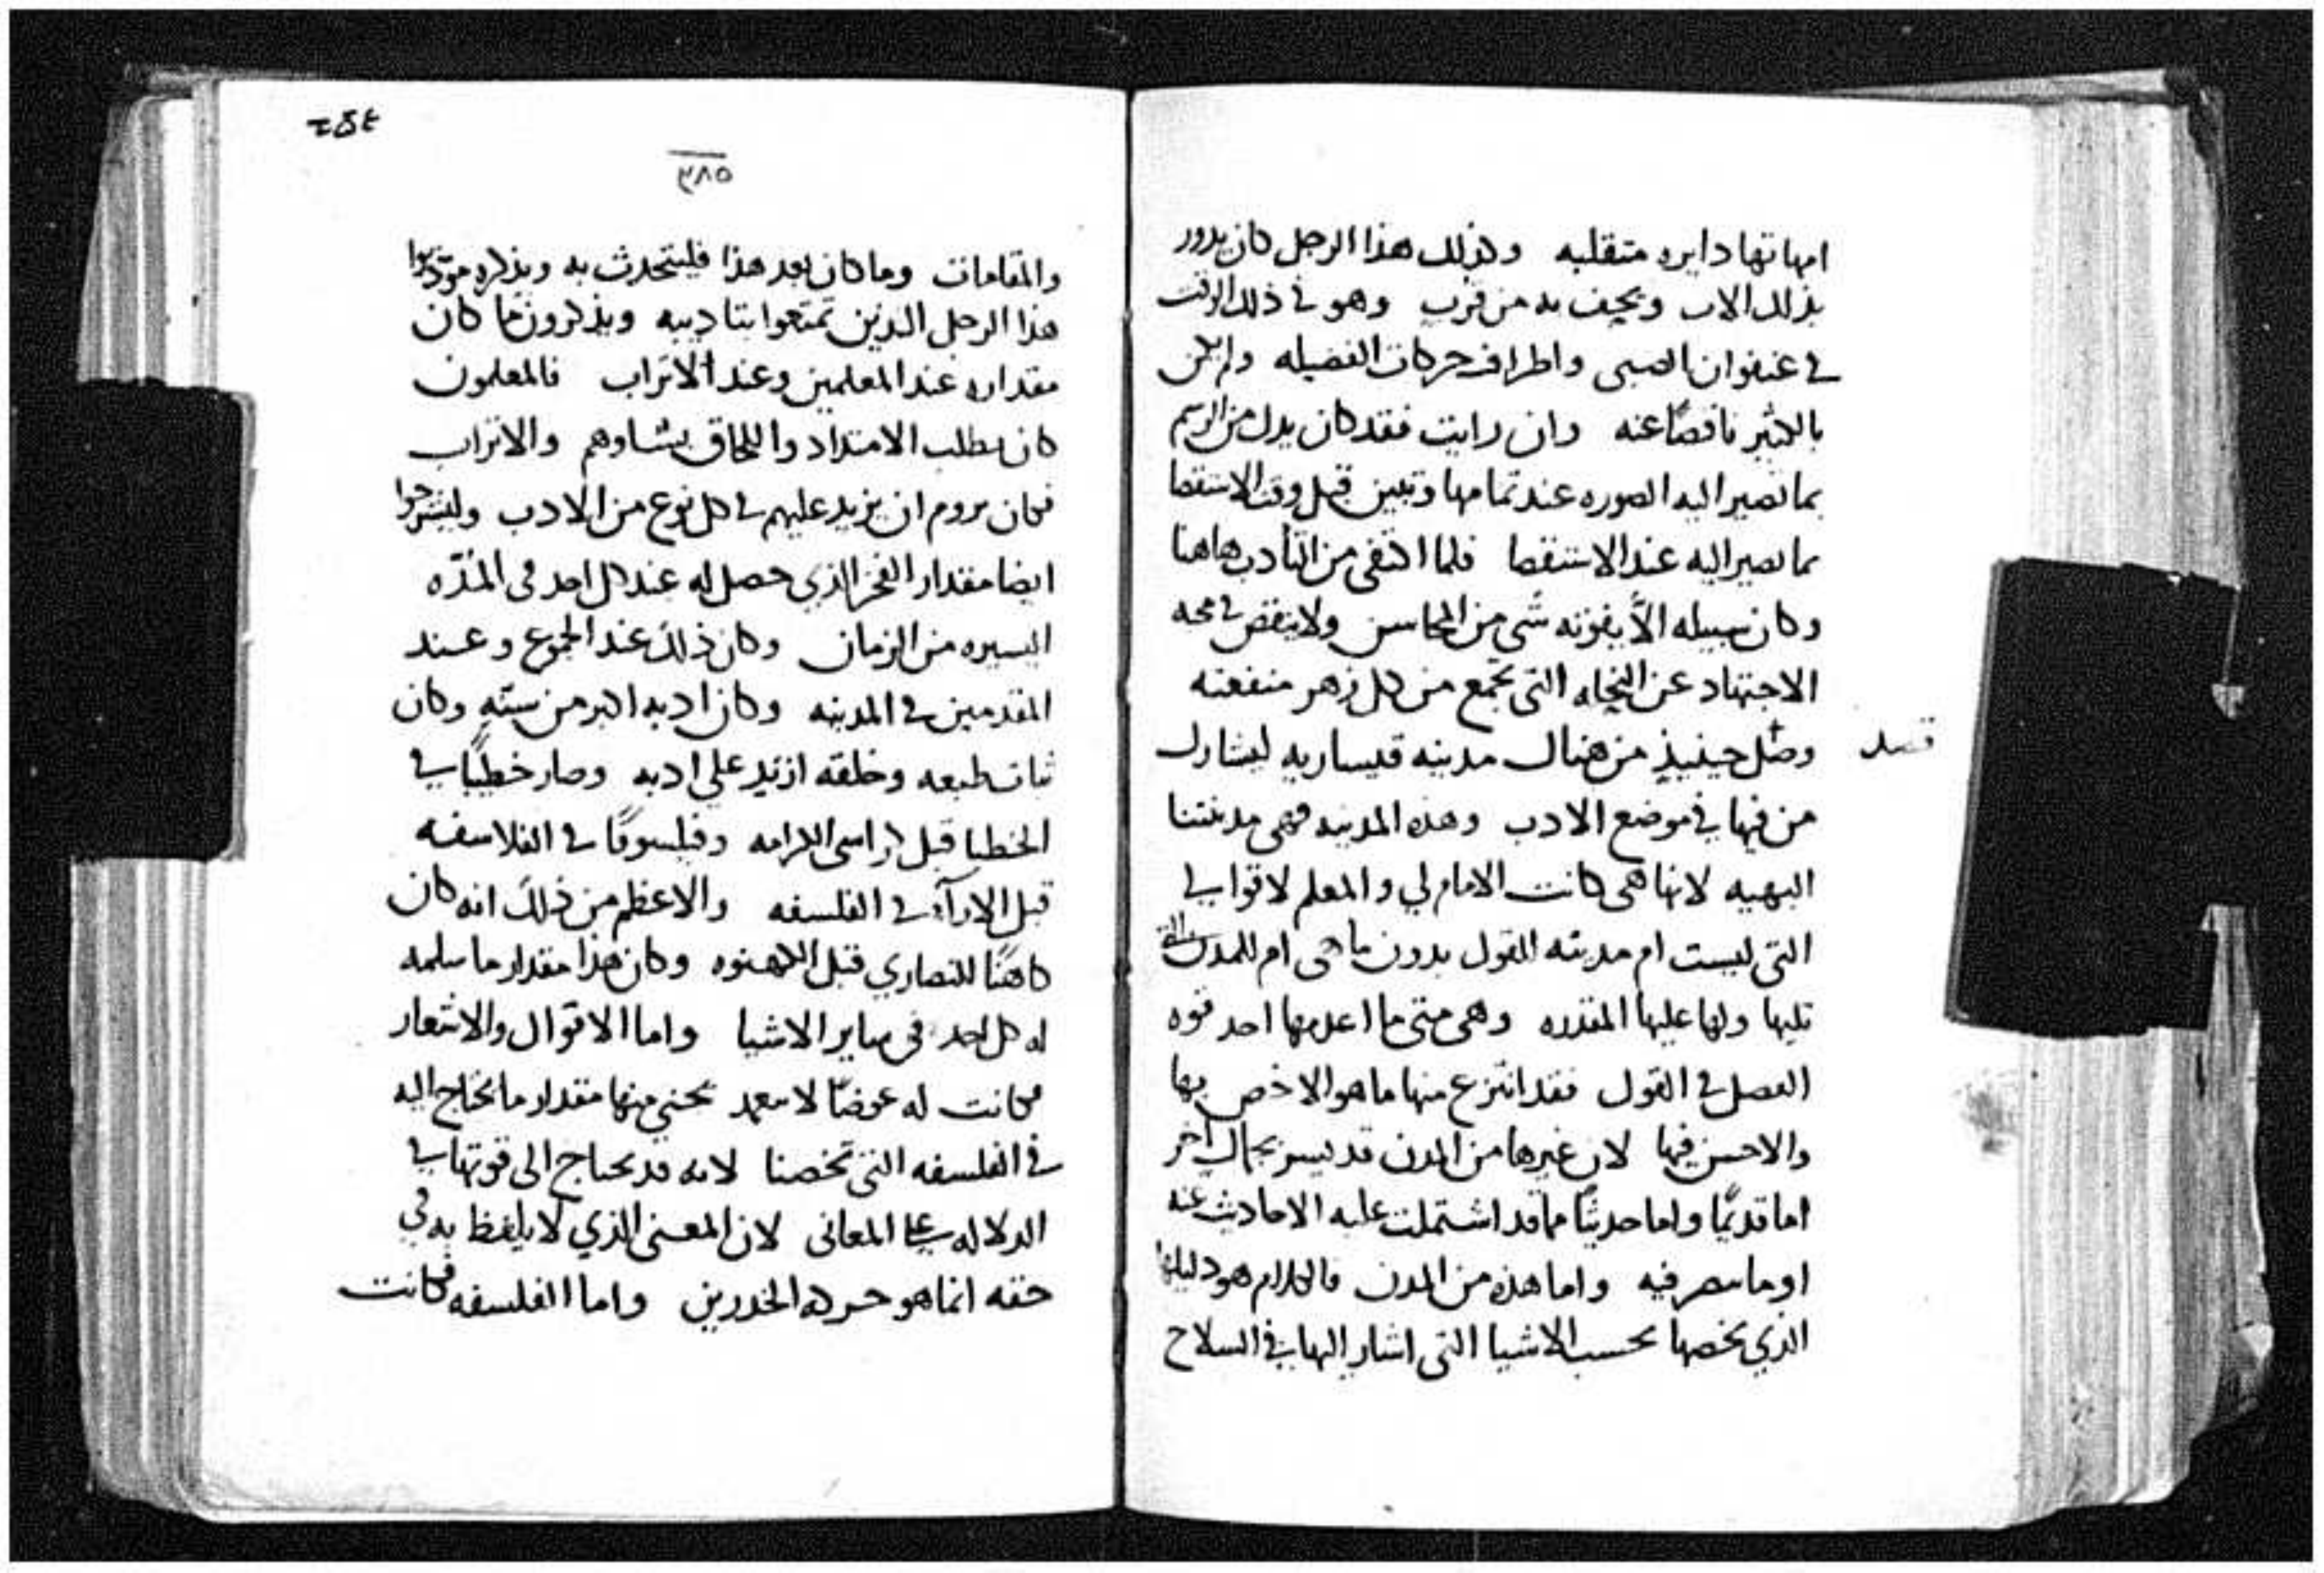 امهاتها دايره متقلبه وكذلك هذا الرجل كان يدور
بذلك الاب ويحف به من قرب وهو في ذلك الوقت
في عنفوان الصبى واطراف حركات الفضيله ولم يكن
بالكثير ناقصًا عنه وان رايت فقد كان يدل من الرسم
بما تصير اليه الصوره عند تمامها وتبين قبل وقت الاستقصا
بما يصير اليه عند الاستقصا فلما اكتفى من التأدب هاهنا
وكان سبيله الاّ يفوته شي من المحاسن ولا ينقص في محبه
الاجتهاد عن النحله التي تجمع من كل زهر منفعته
فصل
وصل حينيذٍ من هناك مدينه قيساريه ليشارك
من فيها في موضع الادب وهذه المدينه فهي مدينتنا
البهيه لانها هي كانت الامام لي والمعلم لاقوالي
التي ليست ام مدينه القول بدون ما هي ام للمدن التي
تليها ولها عليها المقدره وهي متى ما اعدمها احد قوه
الفصل في القول فقد انتزع منها ما هو الاخص بها
والاحسن فيها لان غيرها من المدن قد يسر بجمال اخر
اما قديمًا واما حديثًا مما قد اشتملت عليه الاحاديث عنه
او ما فيه واما هذه من المدن فالكلام هو دليلها
الذي يخصها بحسب الاشيا التي اشار اليها في السلاح
٣٨٥
والمقامات وما كان بعد هذا فليتحدث به ويذكره مودّبوا
هذا الرجل الذين تمتعوا بتاديبه ويذكرون ما كان
مقداره عند المعلمين وعند الاتراب فالمعلمون
كان يطلب الامتداد واللحاق بشاوهم والاتراب
فكان يروم ان يزيد عليهم في كل نوع من الادب وليشرحوا
ايضا مقدار الفخر الذي حصل له عند كل احد في المدّه
اليسيره من الزمان وكان ذلك عند الجموع وعند
المقدمين في المدينه وكان ادبه اكبر من سنّه وكان
ثبات طبعه وخلقه ازيد على ادبه وصار خطيبًا في
الخطبا قبل كراسي الكرامه وفيلسوفًا في الفلاسفه
قبل الارآء في الفلسفه والاعظم من ذلك انه كان
كاهنًا للنصاري قبل الكهنوه وكان هذا مقدار ما سلمه
له كل احد في ساير الاشيا واما الاقوال والاشعار
فكانت له عوضًا يجني منها مقدار ما يحتاج اليه
في الفلسفه التي تخصنا لانه قد يحتاج الى قوتها في
الدلاله على المعاني لان المعنى الذي لا يلفظ به في
حقه انما هو حركه الخدرين واما الفلسفه فكانت